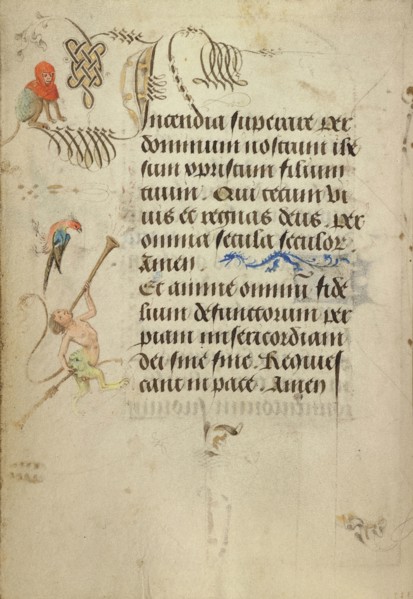 Incendia superare per
dominum nostrum ihe
sum xpristum filium
tuum. Qui tecum vi
uis et regnas deus. per
omnia secula seculor
Amen.
Et anime omniū fide
lium defunctorum per
piam misericordiam
dei sine fine. Requies
cant in pace. Amen